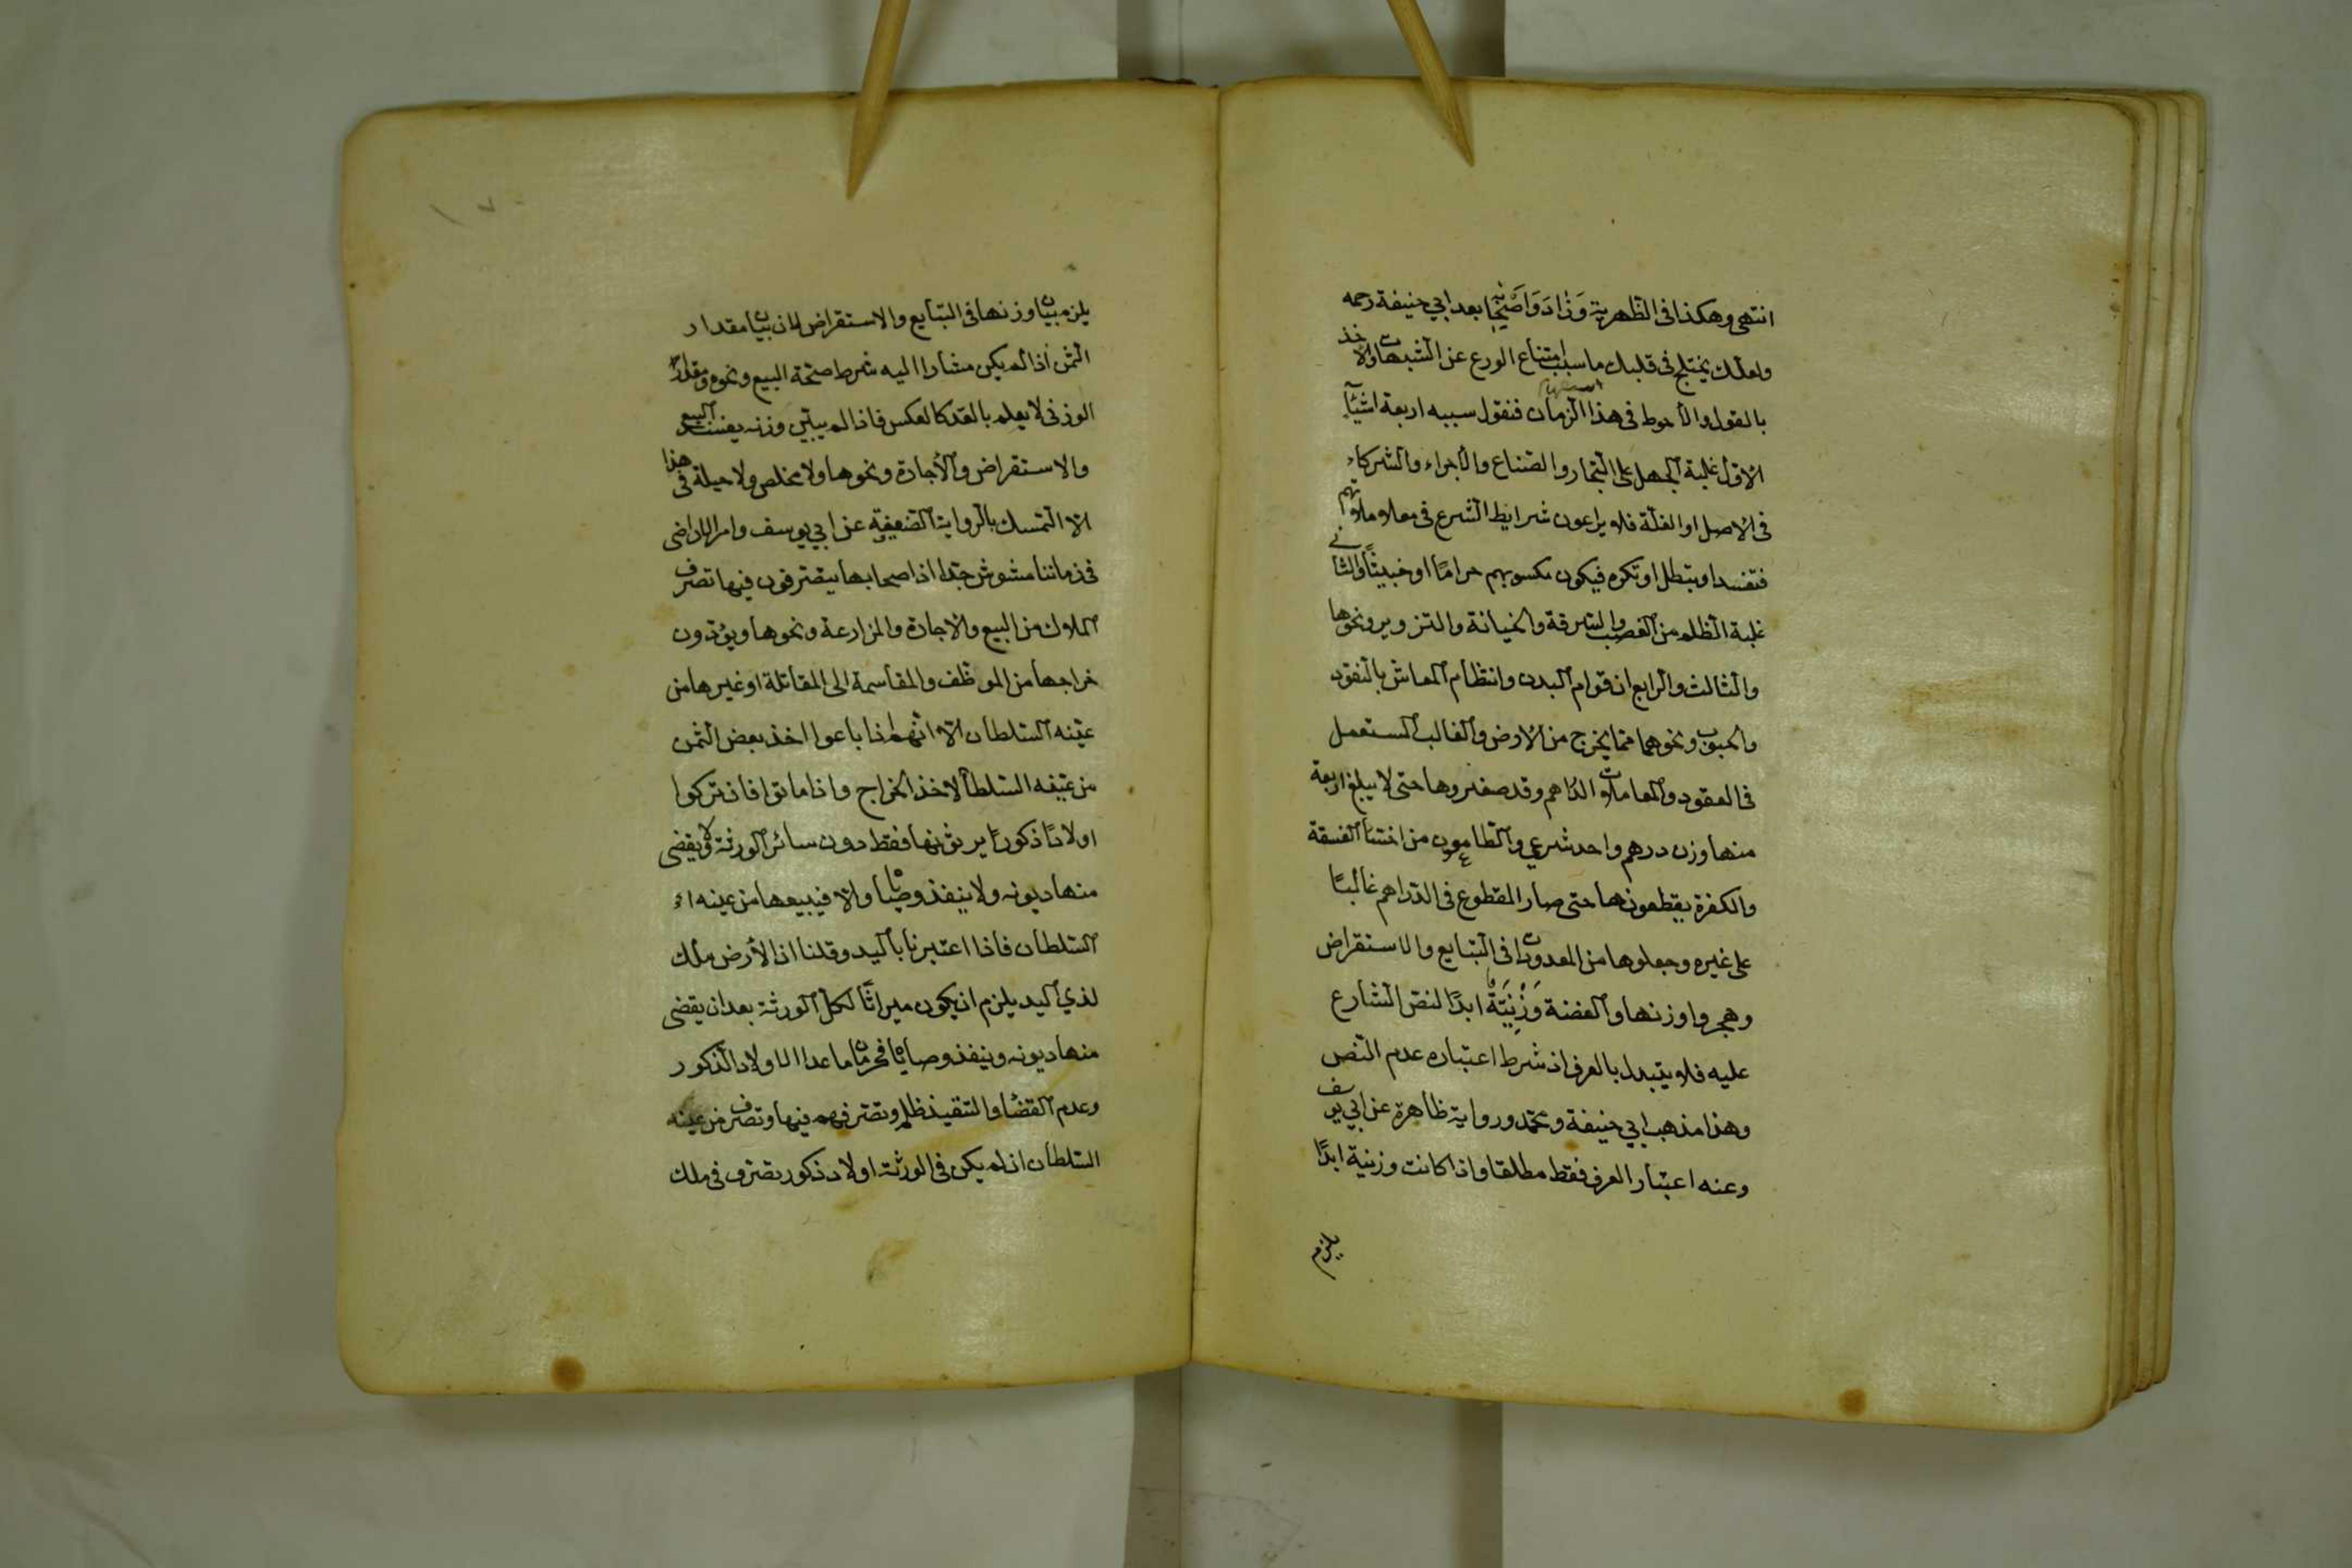 انتهى وهكذا فى الظهرية وزاد واصحابه بعد ابي حنيفة رحمه
ولعلك يختلج فى قلبك ما سبب امتناع الورع عن الشبهات والاخذ
بالقول والاحوط فى هذا الزمان فنقول سببه اربعة اشيآء
الاول غلبة الجهل على التجار والصناع والاجراء والشركاء
فى الاصل او الغلة فلا يراعون شرايط الشرع فى معاملاتهم
فتفسد او تبطل او تكره فيكون مكسوبهم حراما او خبيثا والثانى
غلبة الظلم من الغصب والسرقة والخيانة والتزوير ونحوها
والثالث والرابع ان قوام البدن وانتظام المعاش بالنقود
والحبوب ونحوهما مما يخرج من الارض والغالب المستعمل
فى العقود والمعاملات الدراهم وقد صغروها حتى لا يبلغ اربعة
منها وزن درهم واحد شرعي والطامعون من الفسقة
والكفرة يقطعونها حتى صار المقطوع فى الدراهم غالبا
على غيره وجعلوها من المعدودات فى التبايع والاستقراض
وهجروا وزنها والفضة وَزْنِيَّةٌ ابدا لنص الشارع
عليه فلا يتبدل بالعرف اذ شرط اعتباره عدم النص
وهذا مذهب ابي حنيفة ومحمد ورواية ظاهرة عن ابي يوسف
وعنه اعتبار العرف فقط مطلقا واذا كانت وزنية ابدا
يلزم
يلزم بيان وزنها فى التبايع والاستقراض لان بيان مقدار
الثمن اذا لم يكن مشارا اليه شرط صحة البيع ونحوه ومقدار
الوزنى لا يعلم بالعد كالعكس فاذا لم يبين وزنه يفسد البيع
والاستقراض والاجارة ونحوها ولا مخلص ولا حيلة فى هذا
الا التمسك بالرواية الضعيفة عن ابي يوسف وامر الاراضى
فى زماننا مشوش جدا اذ اصحابها يتصرفون فيها تصرف
الملاك من البيع والاجارة والمزارعة ونحوها ويؤدون
خراجها من الموظف والمقاسمة الى المقاتلة او غيرها من
عينه السلطان الا انهم اذا باعوا اخذ بعض الثمن
من عينه السلطان لاخذ الخراج واذا ماتوا فان تركوا
اولادا ذكورا يرثونها فقط دون سائر الورثة ولا يقضى
منها ديونه ولا ينفذ وصايا والا فيبيعها من عينه
السلطان فاذا اعتبرنا باليد وقلنا ان الارض ملك
لذي اليد يلزم ان يكون ميراثا لكل الورثة بعد ان يقضى
منها ديونه وينفذ وصاياه فحرمان ما عدا الاولاد الذكور
وعدم القضاء والتنفيذ ظلم وتصرفهم فيها وتصرف من عينه
السلطان ان لم يكن فى الورثة اولاد ذكور تصرف فى ملك